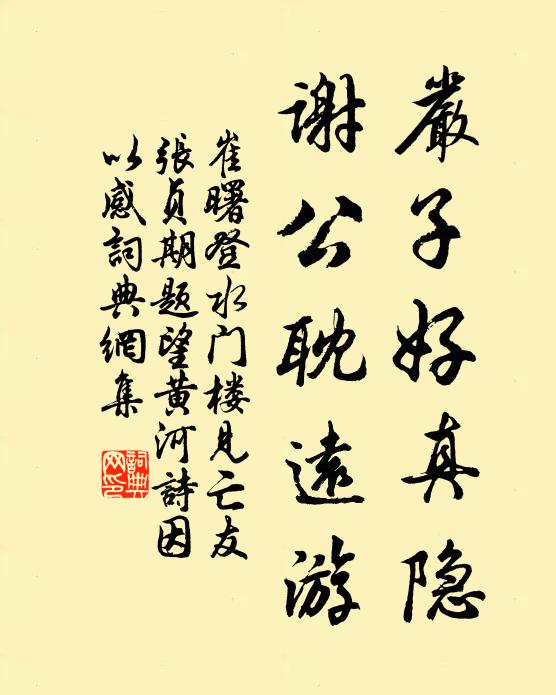 嚴子好真隐
谢公耽遠游
崔曙登水门楼見亡友
張貞期题望黄河詩因
以感詞典網集
詞典網印